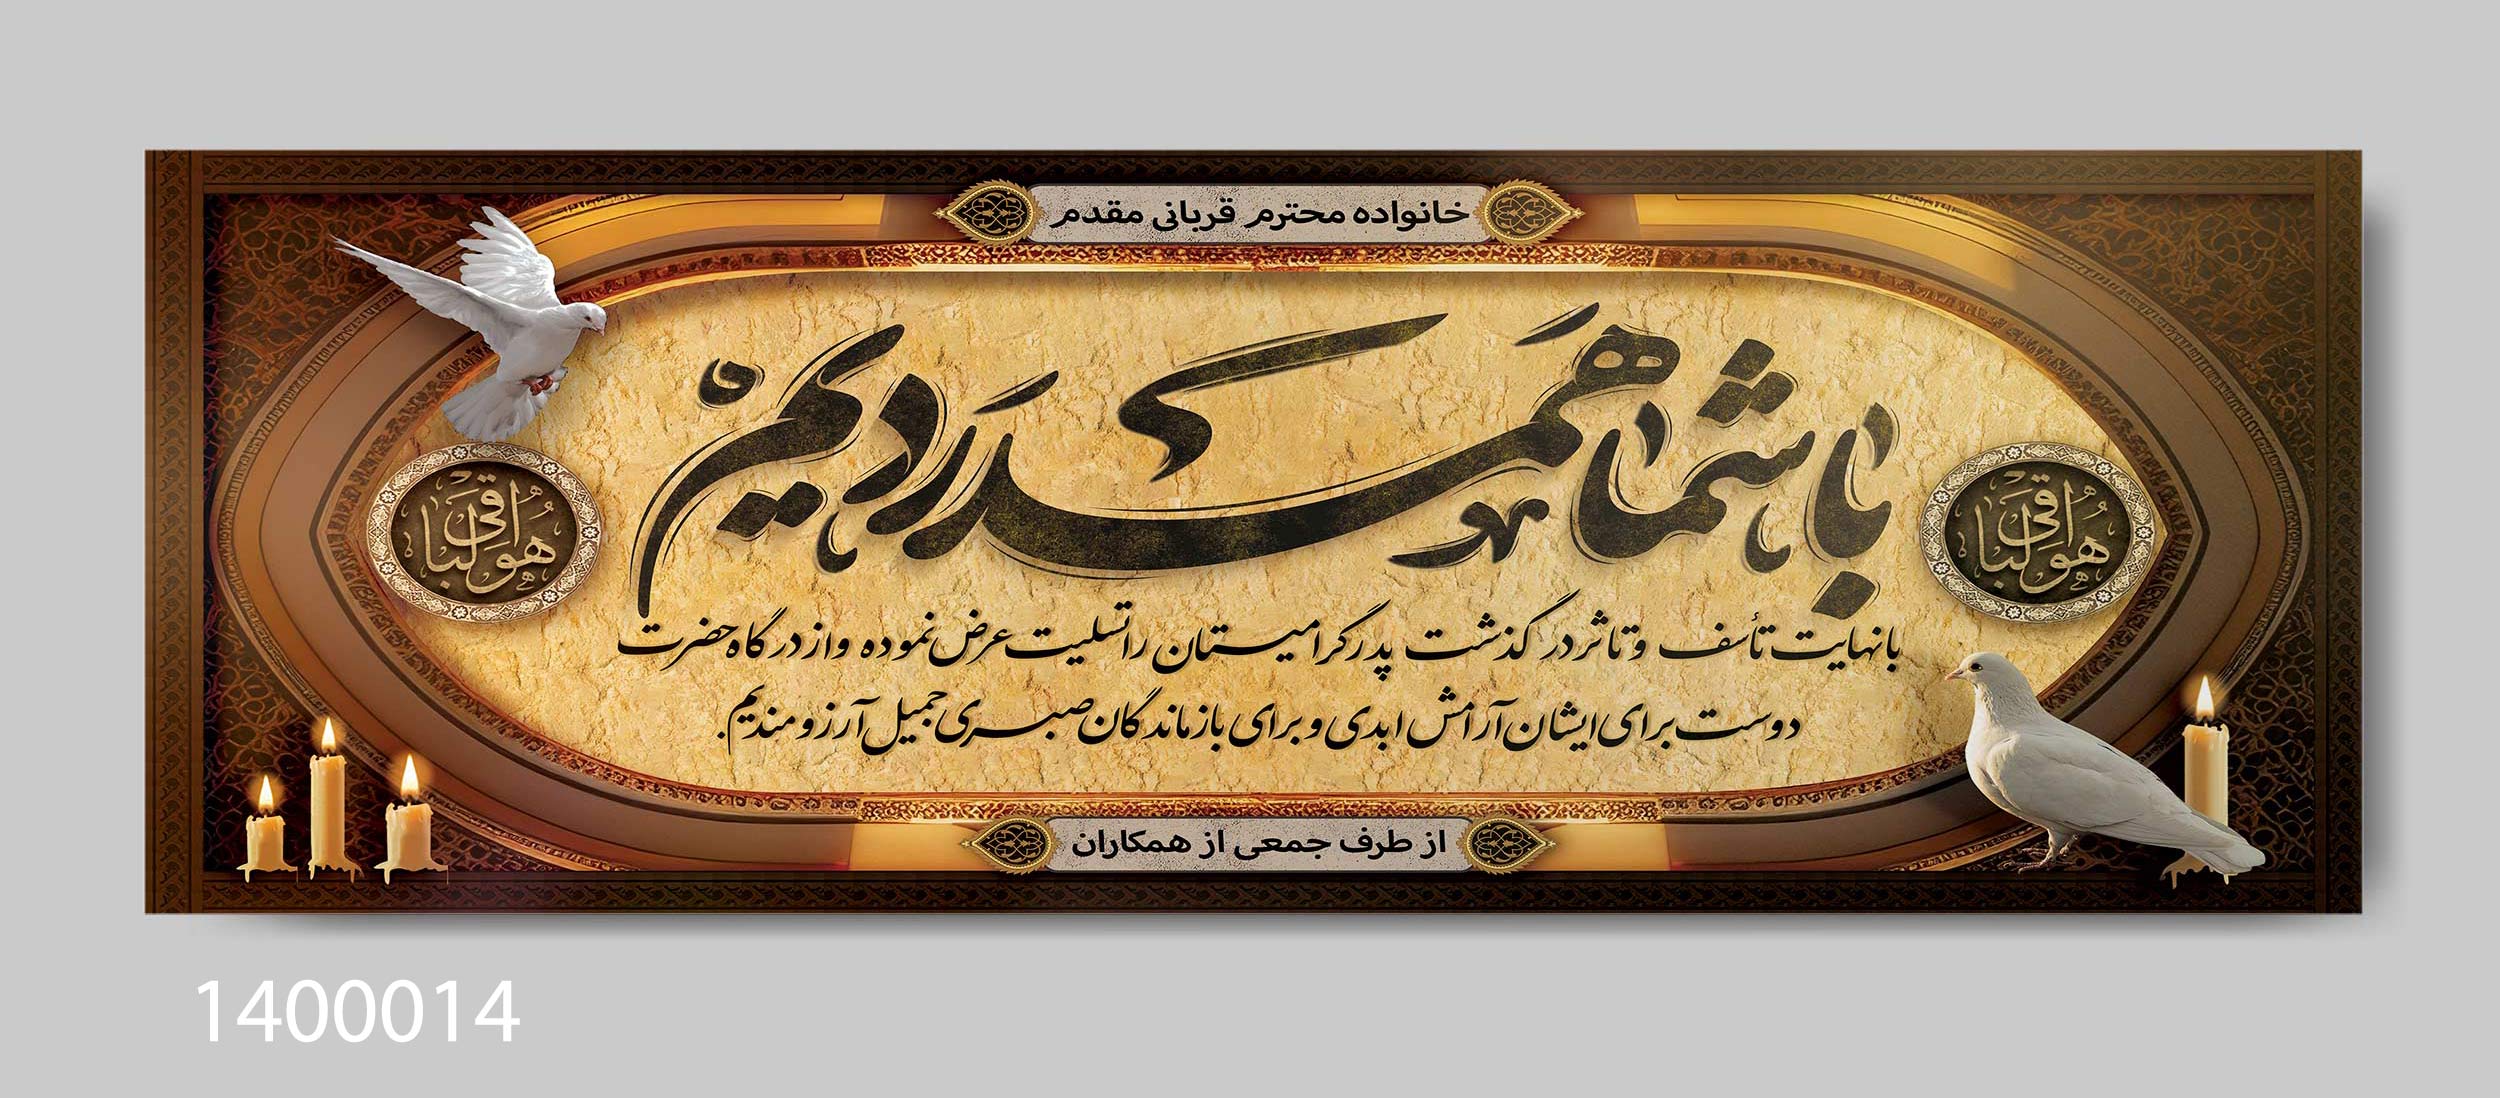 خانواده محترم قربانی مقدم
باشما همدردیم
هوالباقی
هوالباقی
بانهایت تأسف وتاثر درگذشت پدرگرامیستان راتسلیت عرض نموده وازدرگاه حضرت
دوست برای ایشان آرامش ابدی وبرای بازماندگان صبری جمیل آرزومندیم.
از طرف جمعی از همکاران
1400014